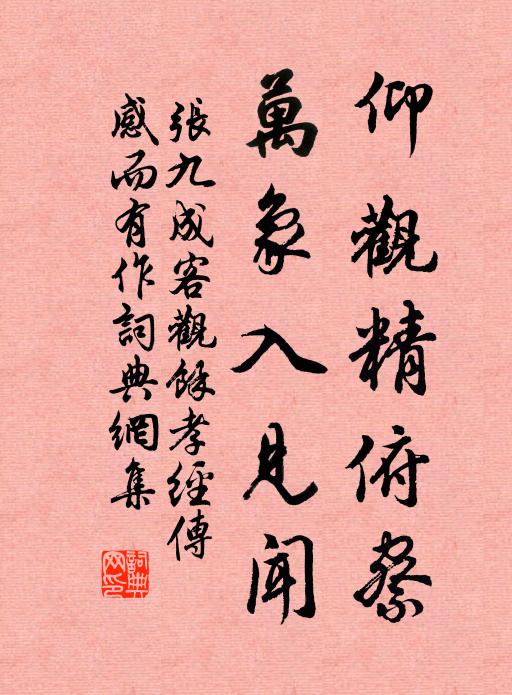 仰觀精俯察
萬象入見聞
張九成客觀餘孝經傳
感而有作詞典網集
詞典網印